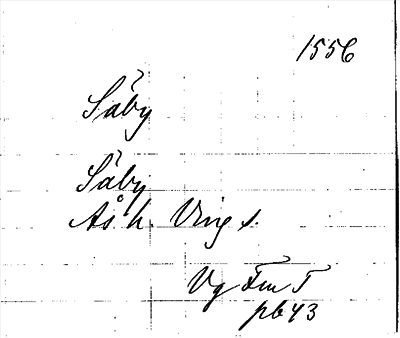 1556
Säby
Säby
Ås h. Ving s.
Vg Fm T
pb 43